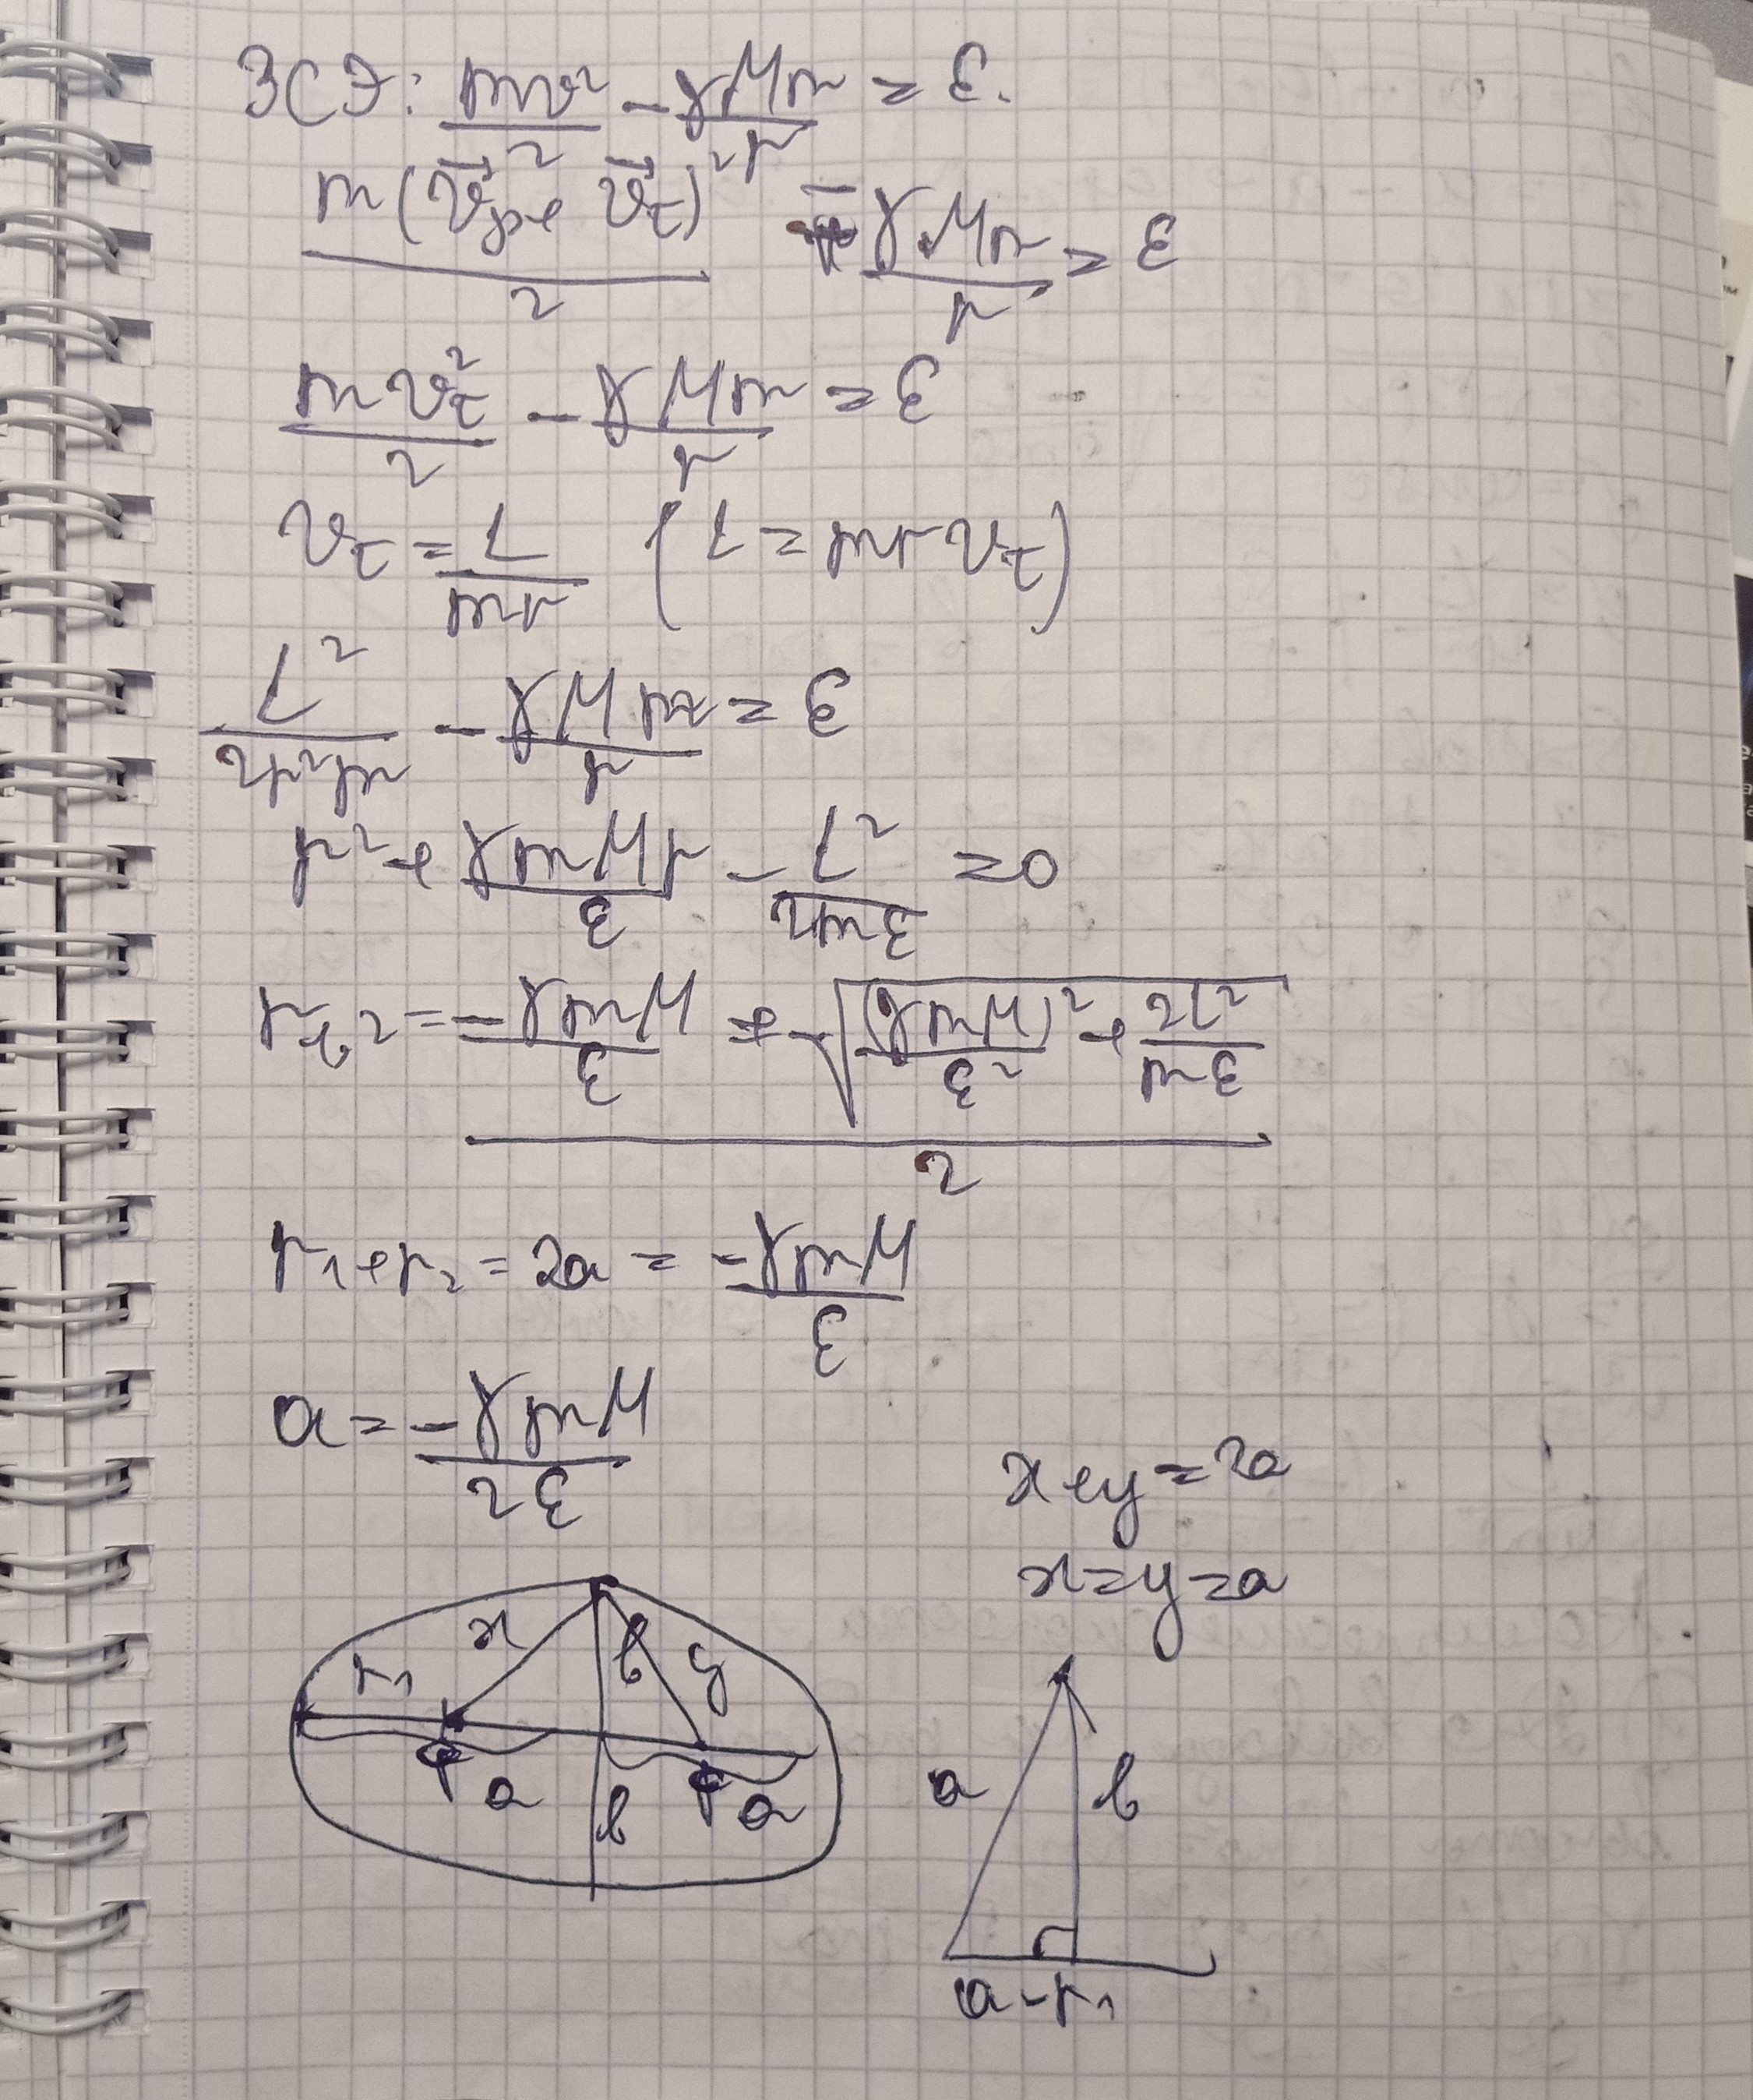 ЗСЭ: mv²/2 - γMm/r = ε.
m(v⃗r + v⃗τ)²/2 - γMm/r = ε
mvτ²/2 - γMm/r = ε
vτ = L/mr (L = mrvτ)
L²/2r²m - γMm/r = ε
r² + γmMr/ε - L²/2mε = 0
r1,2 = (-γmM/ε ± √((γmM)²/ε² + 2L²/mε))/2
r1 + r2 = 2a = -γmM/ε
a = -γmM/2ε
x + y = 2a
x = y = a
x b y
r1
φ a φ a
b
a b
a - r1